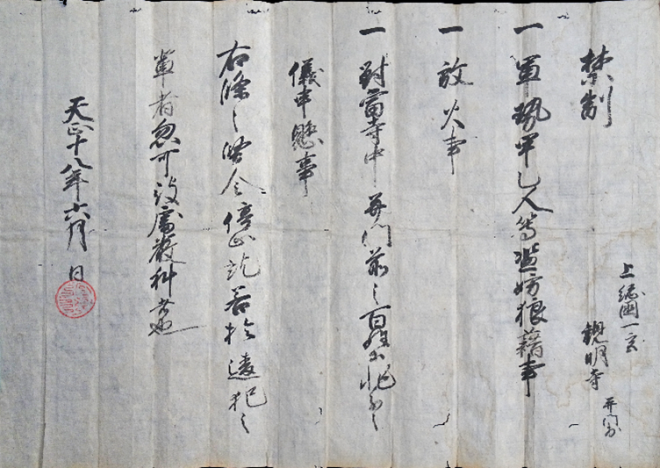 禁制
上総国一宮
観明寺
并門前
一 軍勢甲乙人等濫妨狼藉事
一 放火事
一 対当寺中并門前之百姓等非分之
儀申懸事
右條々堅令停止訖若於違犯之
輩者忽可被処厳科者也
天正十八年六月 日